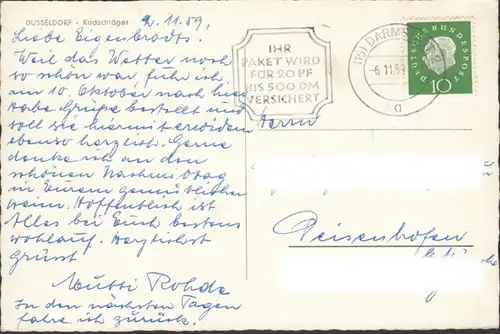 DÜSSELDORF - Radschläger
2.11.59.
Liebe Eigenbrodts,
Weil das Wetter noch
so schön war, fuhr ich
am 10. Oktober nach hier,
habe Grüße bestellt und
soll sie hiermit erwidern
ebenso herzlich. Gerne
denke ich an den
schönen Nachmittag
in Eurem gemütlichen
Heim. Hoffentlich ist
Alles bei Euch bestens
wohlauf. Herzlichst
grüsst
Mutti Rohde
In den nächsten Tagen
fahre ich zurück.
IHR
PAKET WIRD
FÜR 20 PF
BIS 500 DM
VERSICHERT
(16) DARMS
-6.11.59
a
DEUTSCHE BUNDESPOST
10
Herrn
Deisenhofen